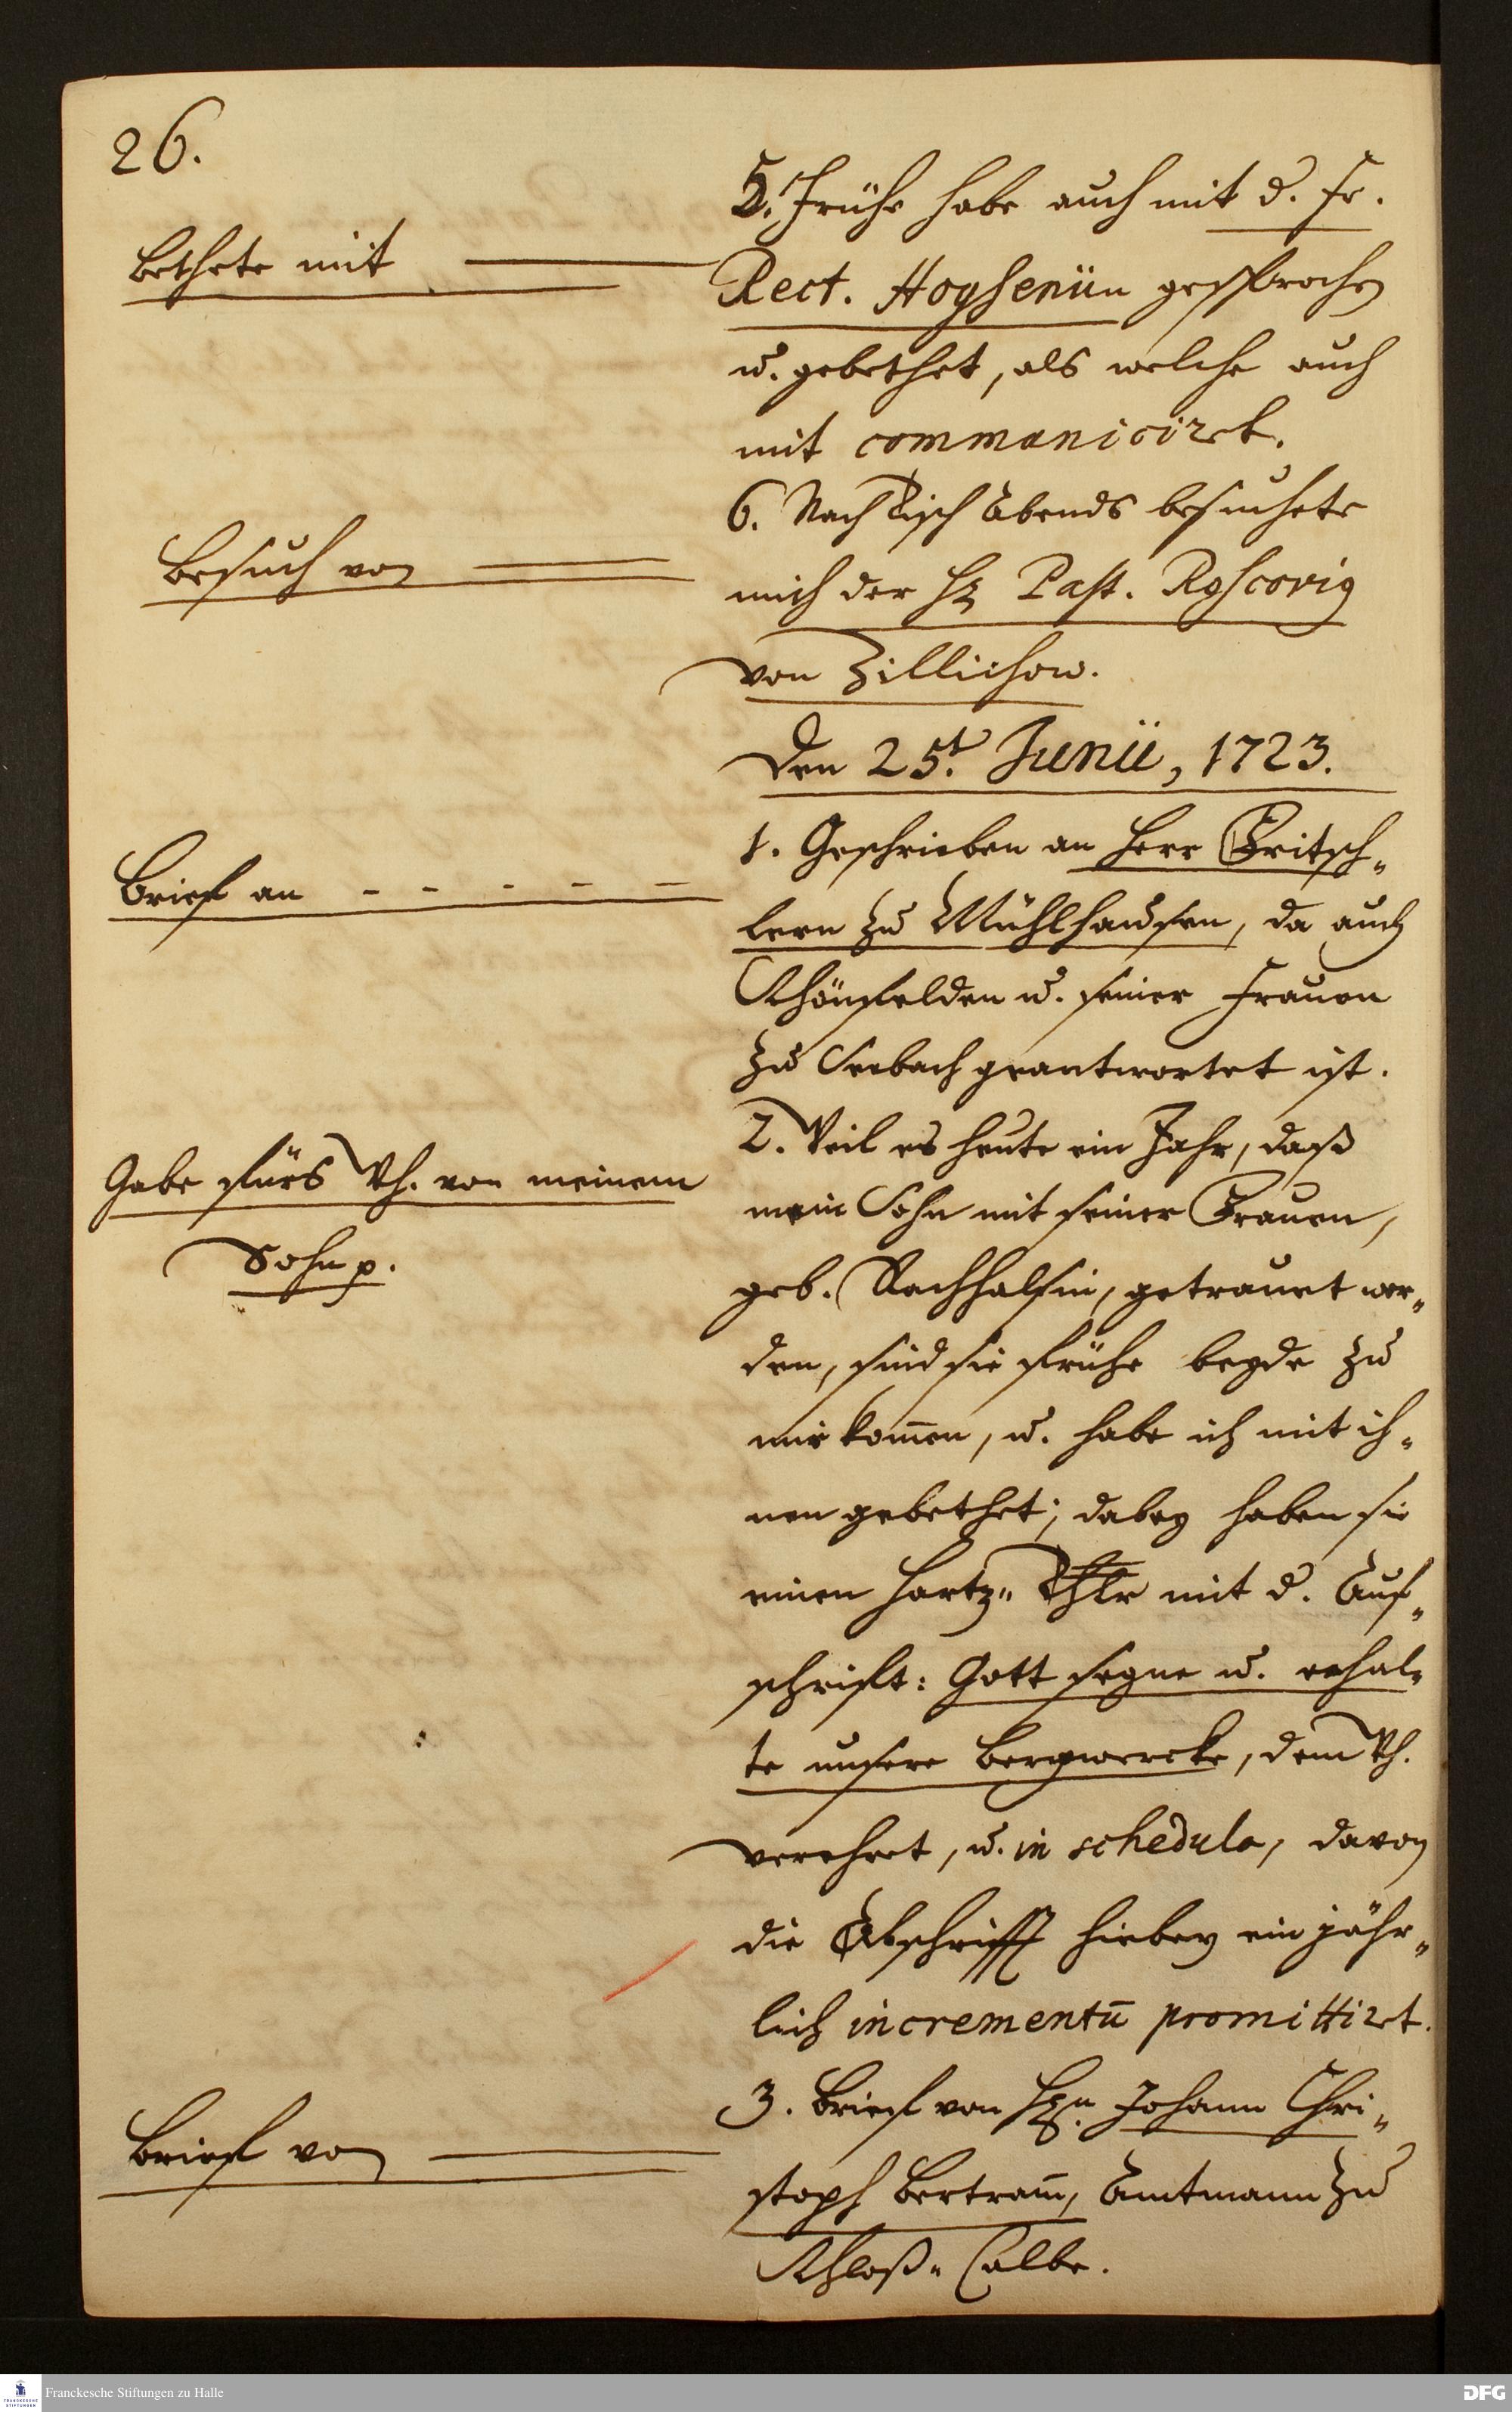 26.
bethete mit
5. Frühe habe auch mit d. Fr.
Rect. Hoysenün gesprochen
u. gebethet, als welche auch
mit communiciret.
Besuch von
6. Nach Tisch Abends besuchete
mich der Hr Past.
von Zillichow.
Den 25t. Junii, 1723.
Brief an - - - - -
1. Geschrieben an Herr Fritsch-
lern zu Mühlhausen, da auch
Schönfelden u. seiner Frauen
zu Seebach geantwortet ist.
Gabe fürs Wh. von meinem
Sohn p.
2. Weil es heute ein Jahr, daß
mein Sohn mit seiner Frauen,
geb. Rachhalsin, getrauet wor-
den, sind sie frühe beyde zu
mir kom̄en, u. habe ich mit ih-
nen gebethet; dabey haben sie
einen Hartz- Thlr mit d. Auf-
schrifft: Gott segne u. erhal-
te unsere Bergwercke, dem Wh.
verehret, u. in schedula, davon
die Abschrifft hiebey ein jähr-
lich incrementū promittiret.
Brief von
3. Brief von Hrn. Johann Chri-
stoph Bertram̄, Amtmann zu
Schloß- Calbe.
Franckesche Stiftungen zu Halle
DFG